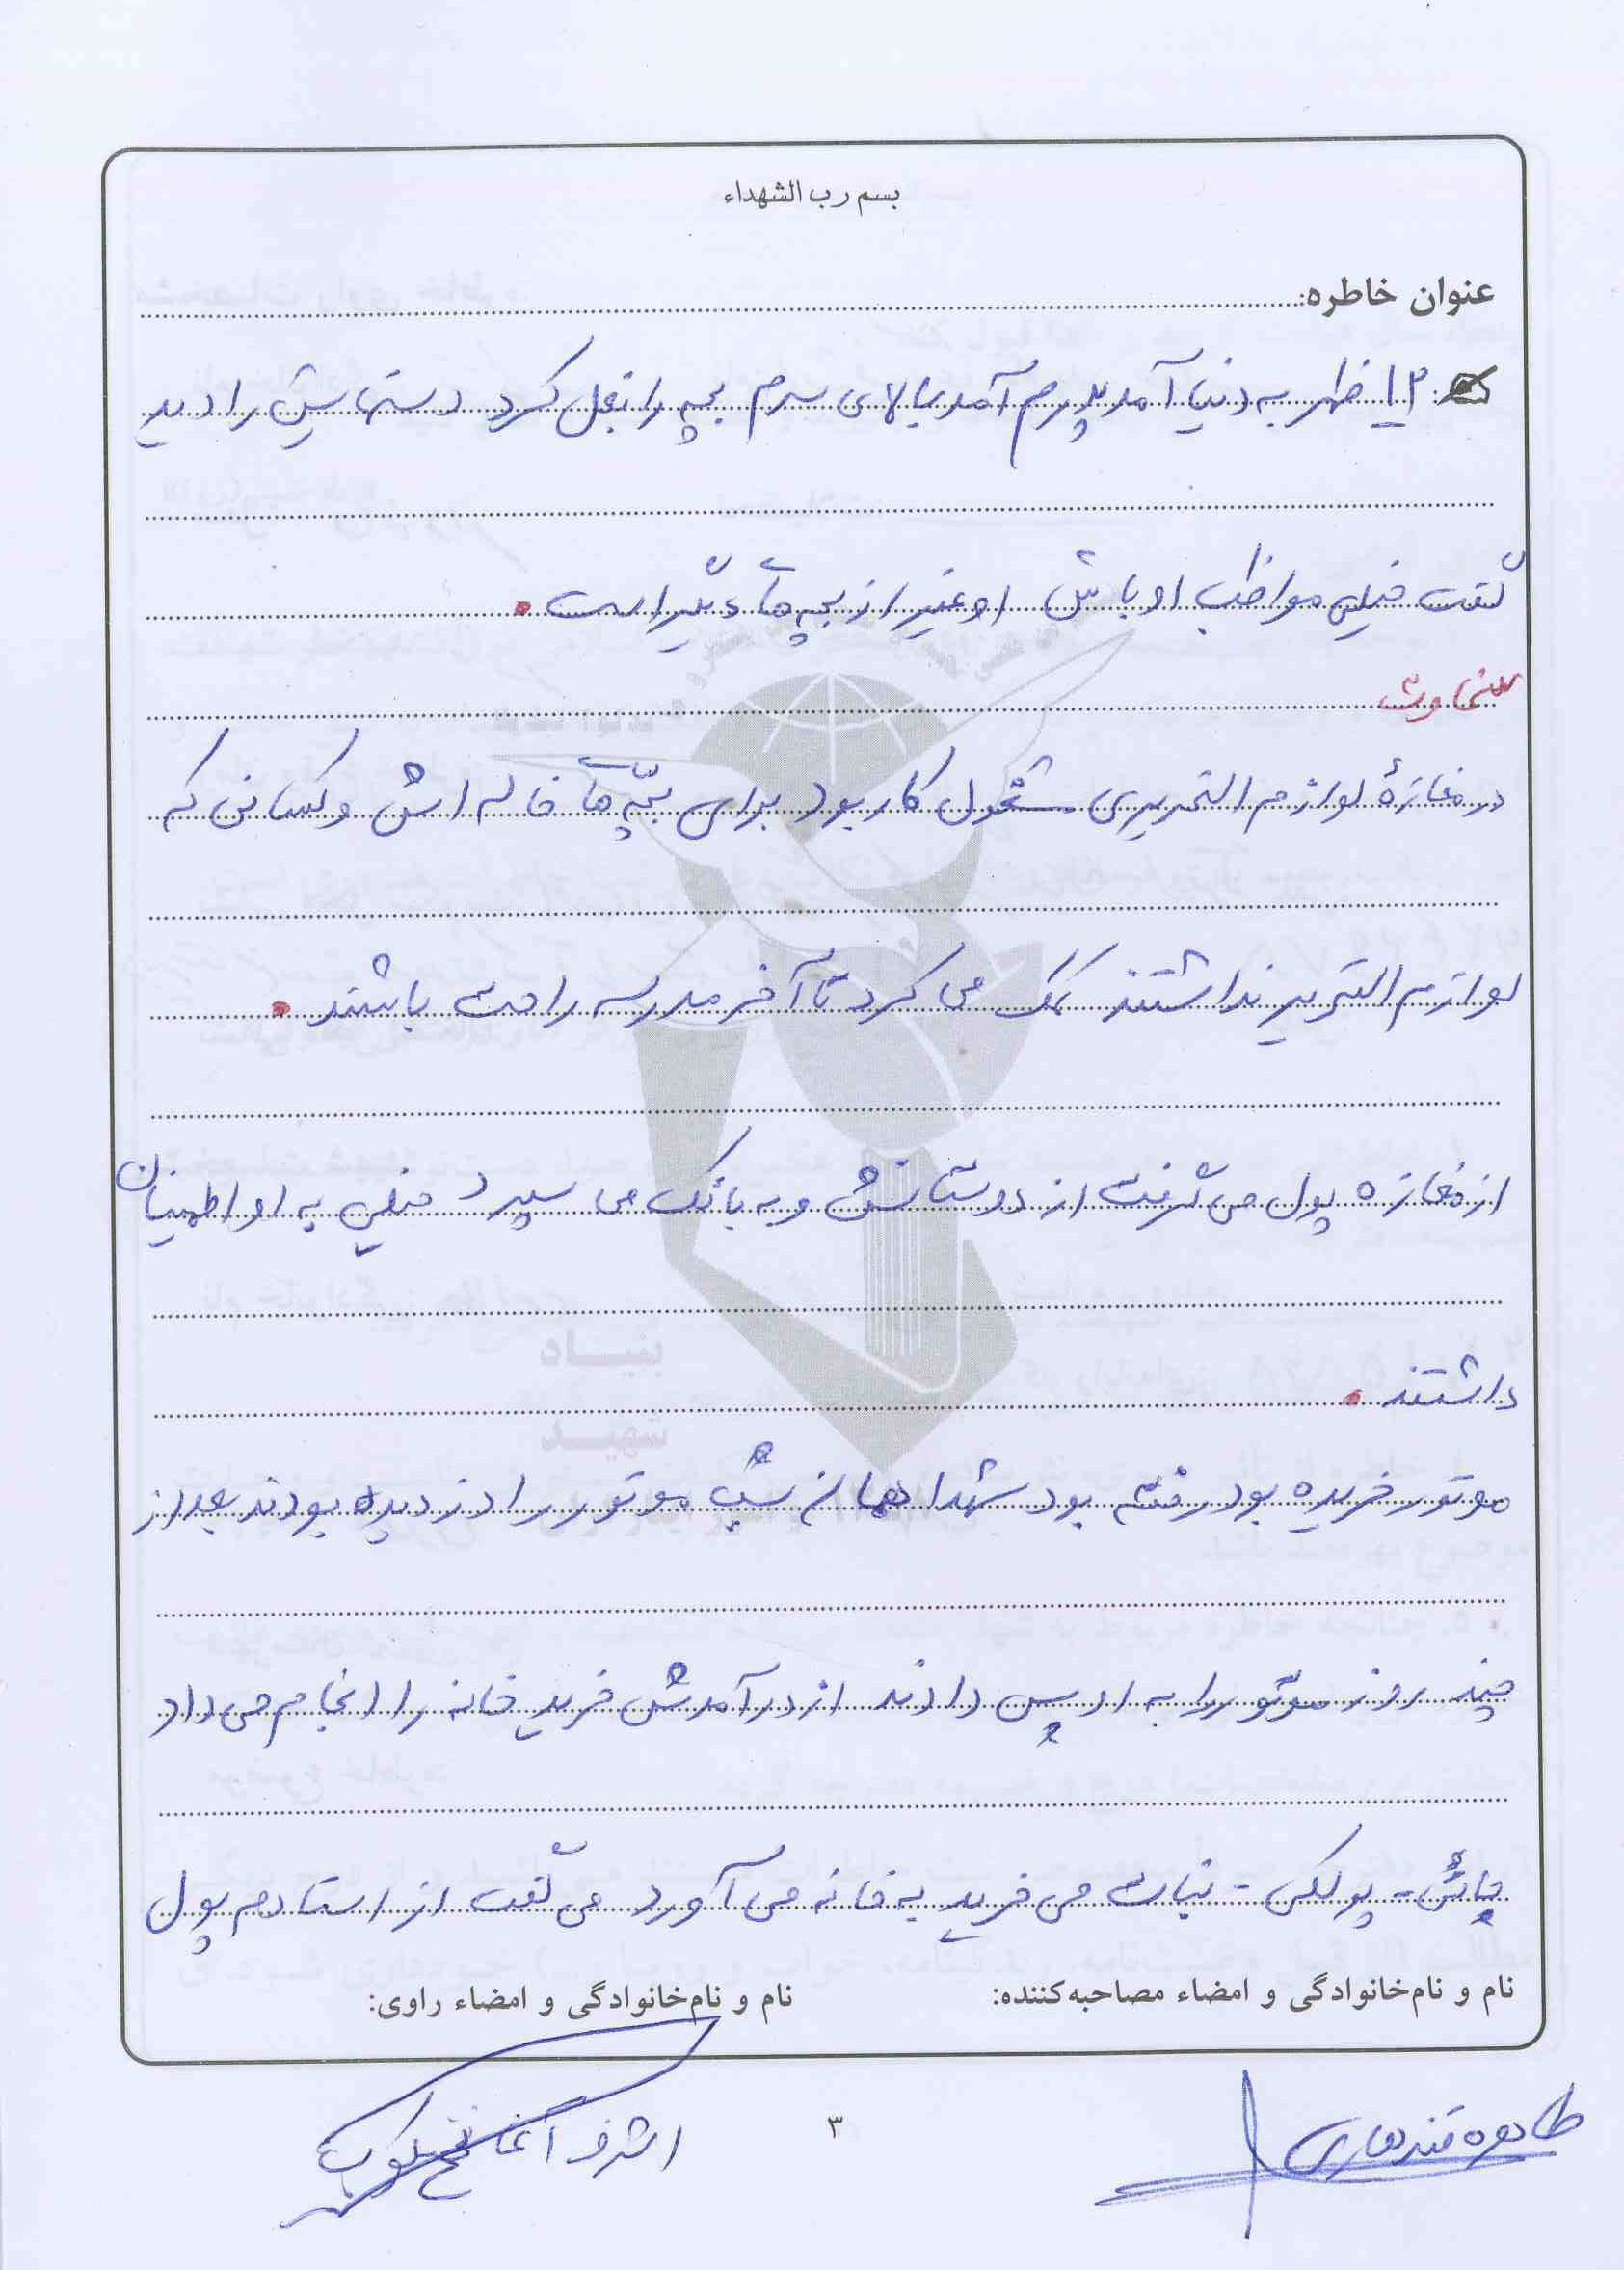 بسم رب الشهداء
عنوان خاطره:
۱۲ ظهر به دنیا آمد پدرم آمد بالای سرم بچه را بغل کرد دستهایش را دید
گفت خیلی مواظب او باش او غیر از بچه های دیگر است.
سخاوت
در مغازهٔ لوازم التحریری مشغول کار بود برای بچّه های خاله اش و کسانی که
لوازم التحریر نداشتند کمک می کرد تا آخر مدرسه راحت باشند.
از مغازه پول می گرفت از دوستانش و به بانک می سپرد خیلی به او اطمینان
داشتند.
موتور خریده بود رفته بود شهدا همان شب موتور را دزدیده بودند بعد از
چند روز موتور را به او پس دادند از درآمدش خرید خانه را انجام می داد
چائی - پولکی - نبات می خرید به خانه می آورد می گفت از استادم پول
نام و نام‌خانوادگی و امضاء مصاحبه‌کننده:
نام و نام‌خانوادگی و امضاء راوی:
طاهره قندهاری
اشرف آغا
۳
بنیاد
شهید